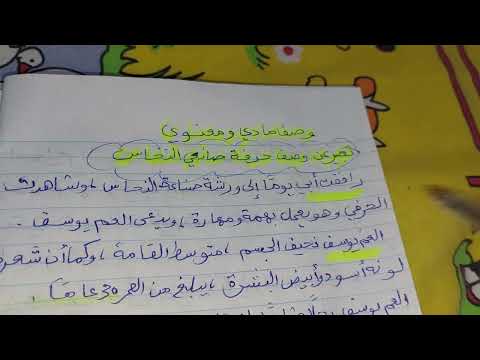 وصف مادي ومعنوي
تعبير عن وصف حرفة صانعي النحاس
رافقت أبي يوما إلى ورشة صناعة النحاس، وشاهدت
الحرفي وهو يعمل بهمة ومهارة، ويدعى العم يوسف.
العم يوسف نحيف الجسم، متوسط القامة، وكما أن شعره
لونه أسود وأبيض البشرة، يبلغ من العمر 30 عاما.
العم يوسف رجلا